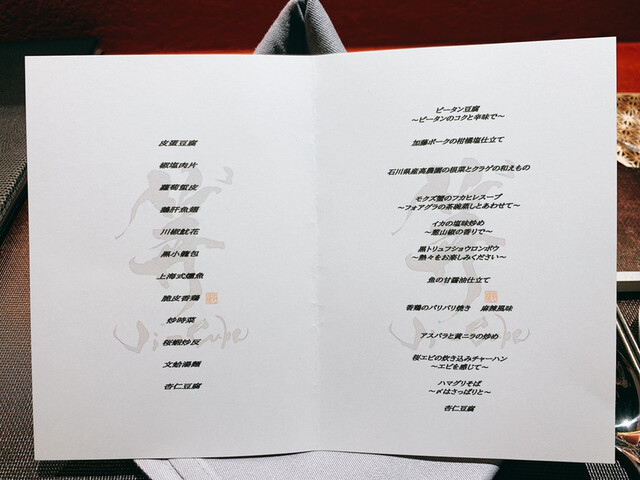 皮蛋豆腐
椒塩肉片
蘿蔔蜇皮
鵝肝魚翅
川椒魷花
黒小籠包
上海式燻魚
脆皮香鶏
炒時菜
桜蝦炒反
文蛤湯麺
杏仁豆腐
ピータン豆腐
～ピータンのコクと辛味で～
加藤ポークの柑橘塩仕立て
石川県産高農園の根菜とクラゲの和えもの
モクズ蟹のフカヒレスープ
～フォアグラの茶碗蒸しとあわせて～
イカの塩味炒め
～葱山椒の香りで～
黒トリュフショウロンポウ
～熱々をお楽しみください～
魚の甘醤油仕立て
香鶏のパリパリ焼き 麻辣風味
アスパラと黄ニラの炒め
桜エビの炊き込みチャーハン
～エビを感じて～
ハマグリそば
～〆はさっぱりと～
杏仁豆腐